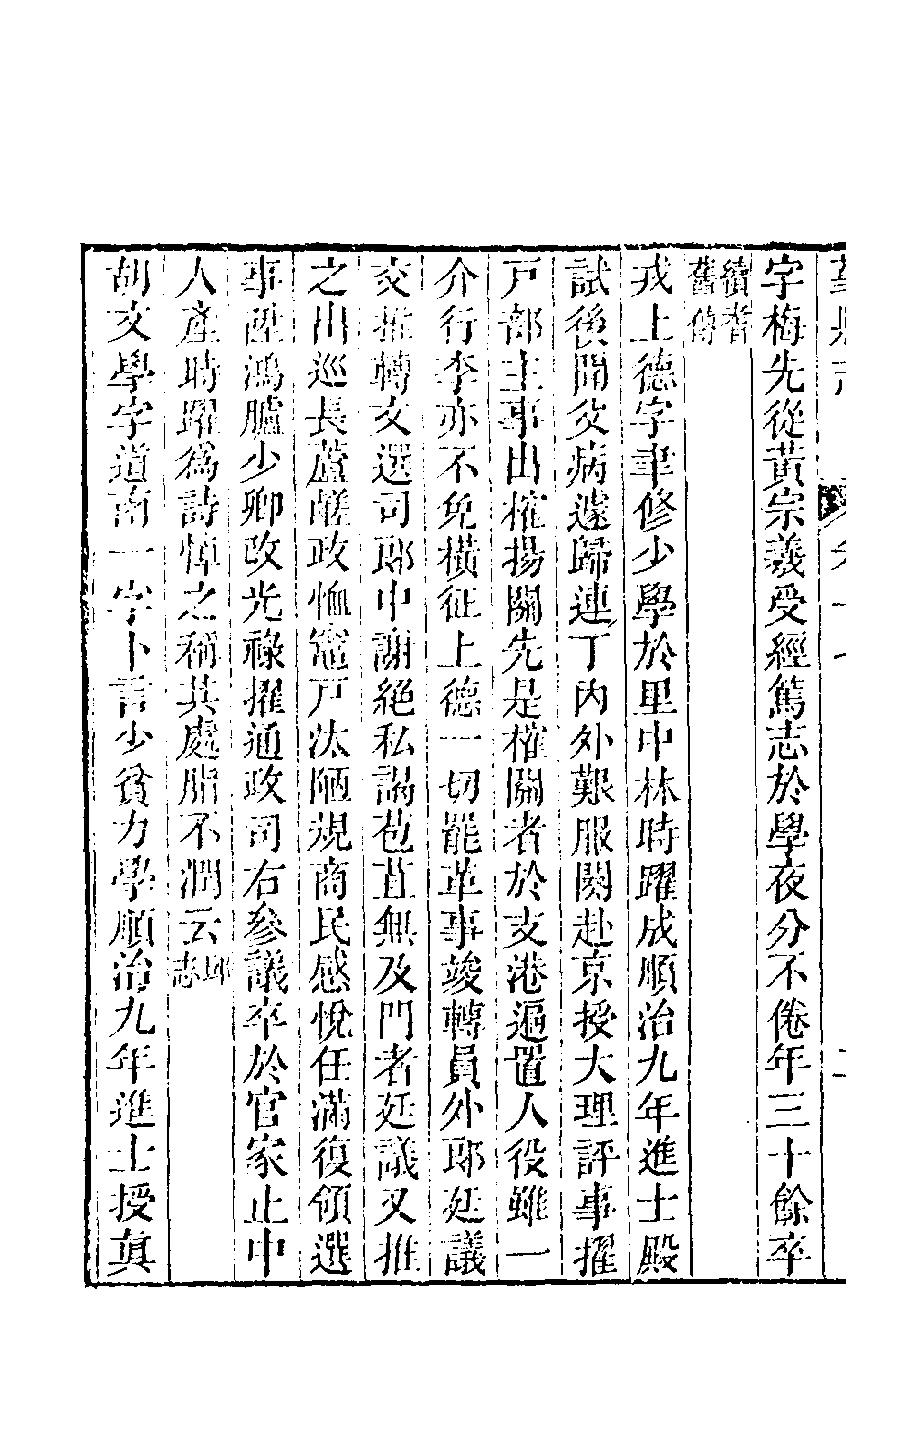 字梅先從黃宗羲受經篤志於學夜分不倦年三十餘卒
續耆
舊傳
戎上德字聿修少學於里中林時躍成順治九年進士殿
試後聞父病遽歸連丁內外艱服闋赴京授大理評事擢
戸部主事出榷揚關先是榷關者於支港遍置人役雖一
介行李亦不免橫征上德一切罷革事竣轉員外郎廷議
交推轉文選司郎中謝絕私謁苞苴無及門者廷議又推
之出巡長蘆鹺政恤竈戸汰陋規商民感悅任滿復領選
事陞鴻臚少卿改光祿擢通政司右參議卒於官家止中
人產時躍爲詩悼之稱其處脂不潤云
邱
志
胡文學字道南一字卜言少貧力學順治九年進士授眞